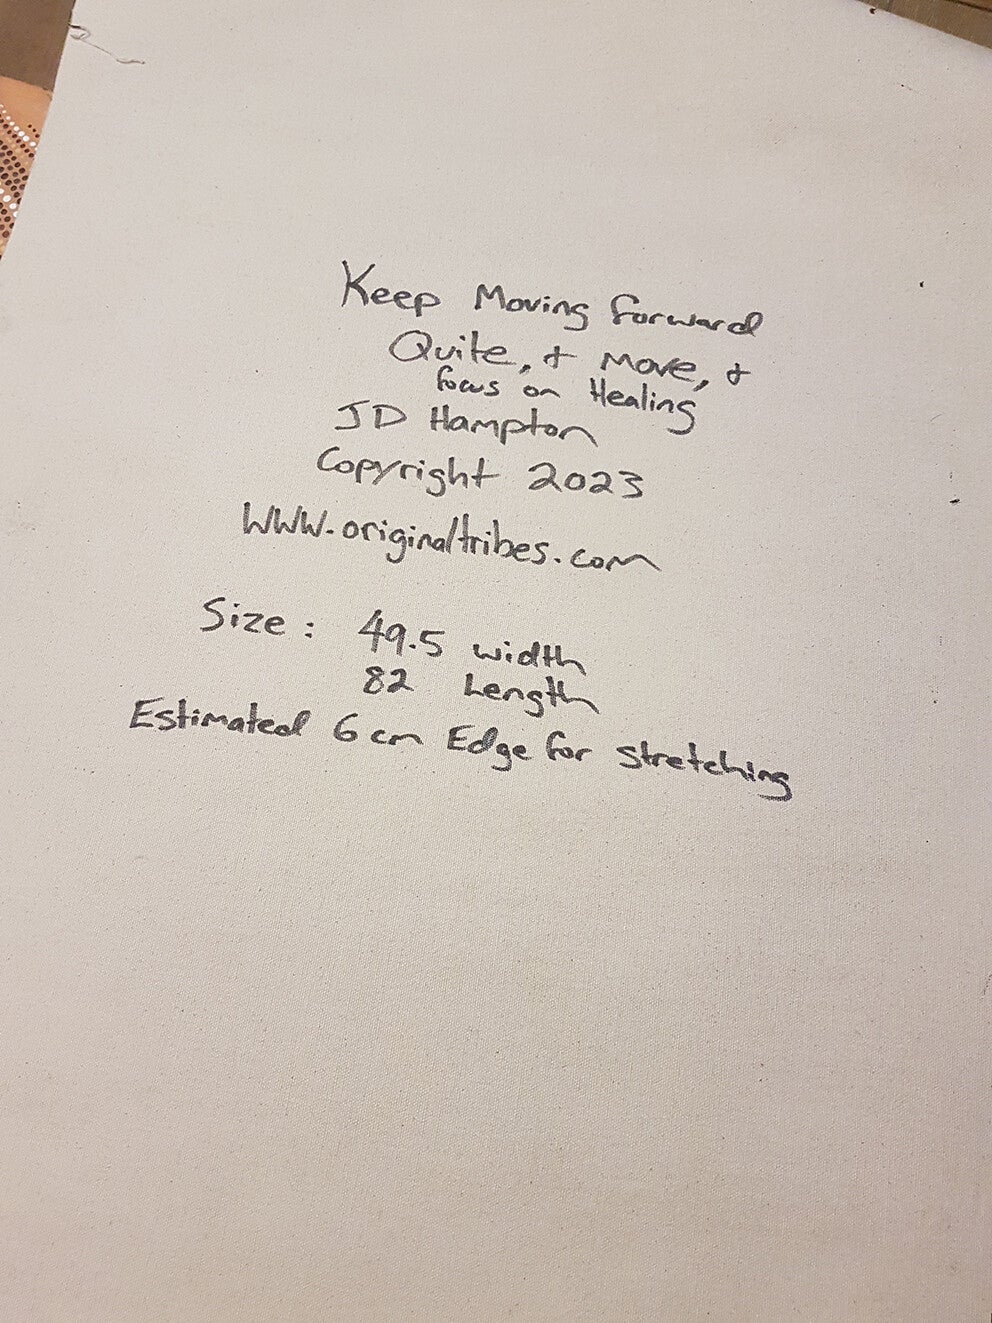 Keep Moving forward
Quite, + Move, +
focus on Healing
JD Hampton
Copyright 2023
WWW.originaltribes.com
Size: 49.5 width
82 Length
Estimated 6cm Edge for stretching